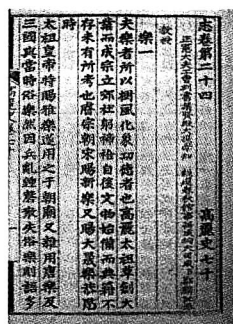 志卷第二十四 高麗史七十
正憲大夫工曹判書集賢殿大提學知 經筵春秋館事兼成均大司成
教修
樂一
夫樂者所以樹風化象功德者也高麗太祖草創大
業而成宗立郊社躬禘祫自後文物始備而典籍不
存未有所考也睿宗朝宋賜新樂又賜大晟樂恭愍
時
太祖皇帝特賜雅樂遂用之于朝廟又雜用唐樂及
三國與當時俗樂然因兵亂鍾磬散失俗樂則語多